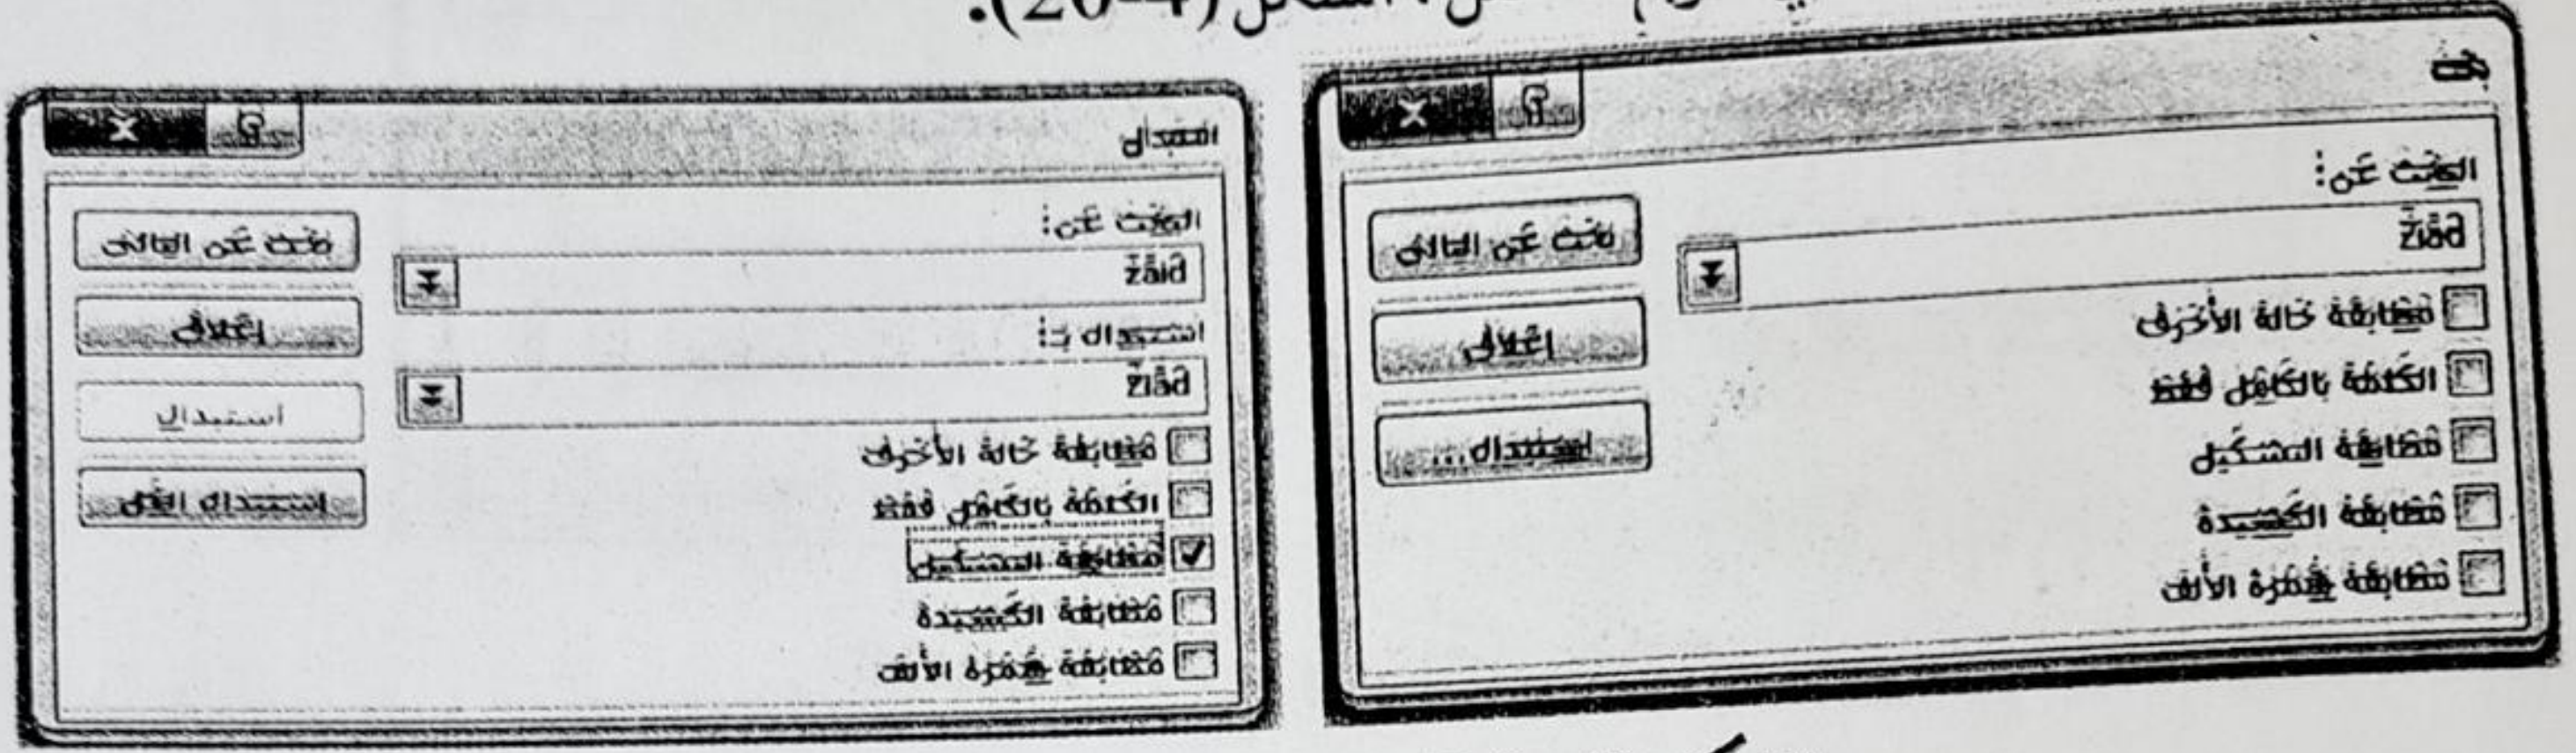 الشكل (4-20).
بحث
البحث عن:
Ziad
مطابقة حالة الأحرف
الكلمة بالكامل فقط
مطابقة التشكيل
مطابقة الكشيدة
مطابقة همزة الألف
بحث عن التالي
إغلاق
استبدال...
استبدال
البحث عن:
zaid
استبدال بـ:
Ziad
مطابقة حالة الأحرف
الكلمة بالكامل فقط
مطابقة التشكيل
مطابقة الكشيدة
مطابقة همزة الألف
بحث عن التالي
إغلاق
استبدال
استبدال الكل